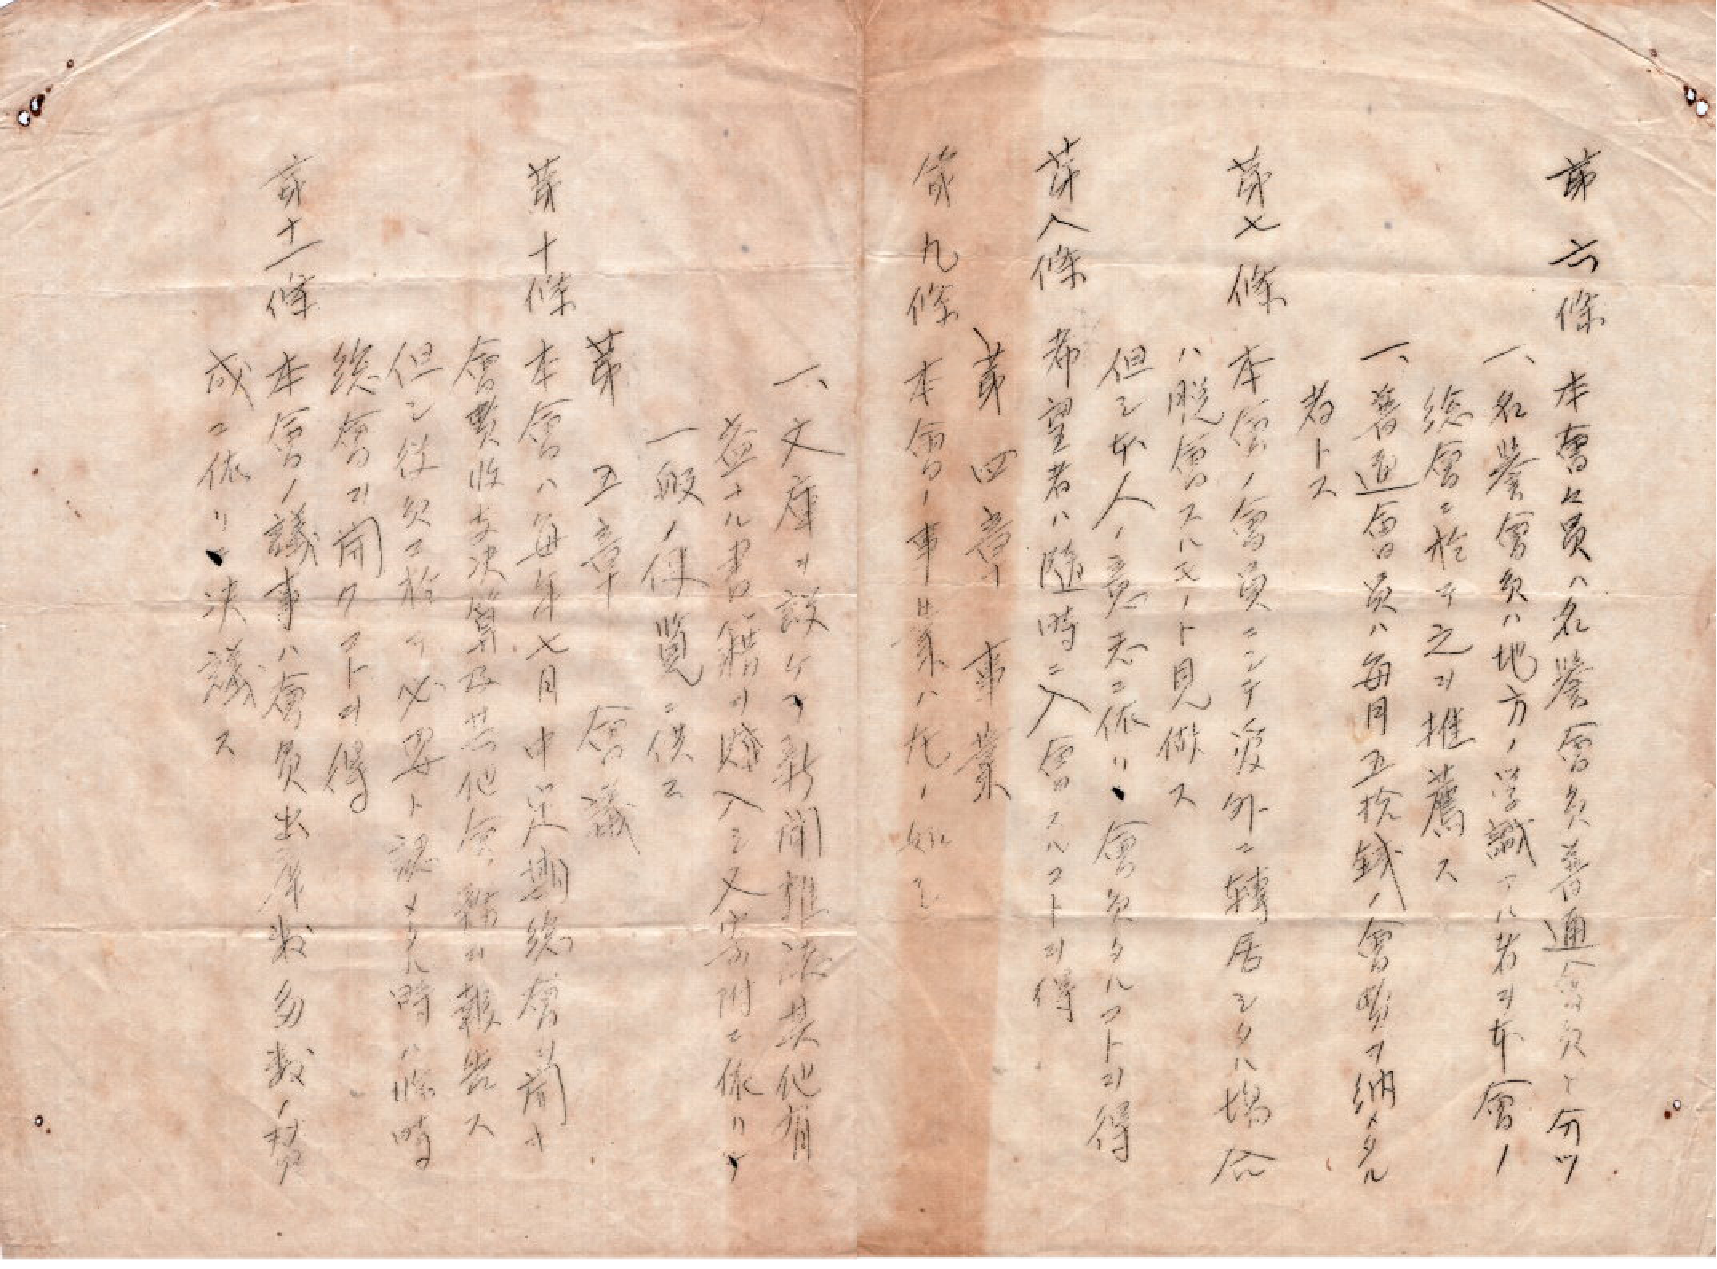 第六條 本會々員ハ名譽會員普通會員ト分ツ
一、名譽會員ハ地方ノ学識アル者ヲ本會ノ
總會ニ於テ之ヲ推薦ス
一、普通會員ハ毎月五拾銭ノ會費ヲ納メタル
者トス
第七條 本會ノ會員ニシテ 外ニ轉居シタル場合
ハ脱會スルモノト見做ス
但シ本人ノ意志ニ依リ會員タルコトヲ得
第八條 希望者ハ随時ニ入會スルコトヲ得
第四章 事業
第九條 本會ノ事業ハ左ノ如シ
一、文庫ヲ設ケテ新聞雑誌其他有
益ナル書籍ヲ購入シ又寄附ニ依リテ
一般ノ 覧ニ供ス
第五章 會議
第十條 本會ハ毎年七月中定期總會ヲ開キ
會費收支決算及其他會務ヲ報告ス
但シ役員ニ於テ必要ト認メタル時ハ臨時
總會ヲ開クコトヲ得
第十一條 本會ノ議事ハ會員出席数多数ノ賛
成ニ依リテ決議ス